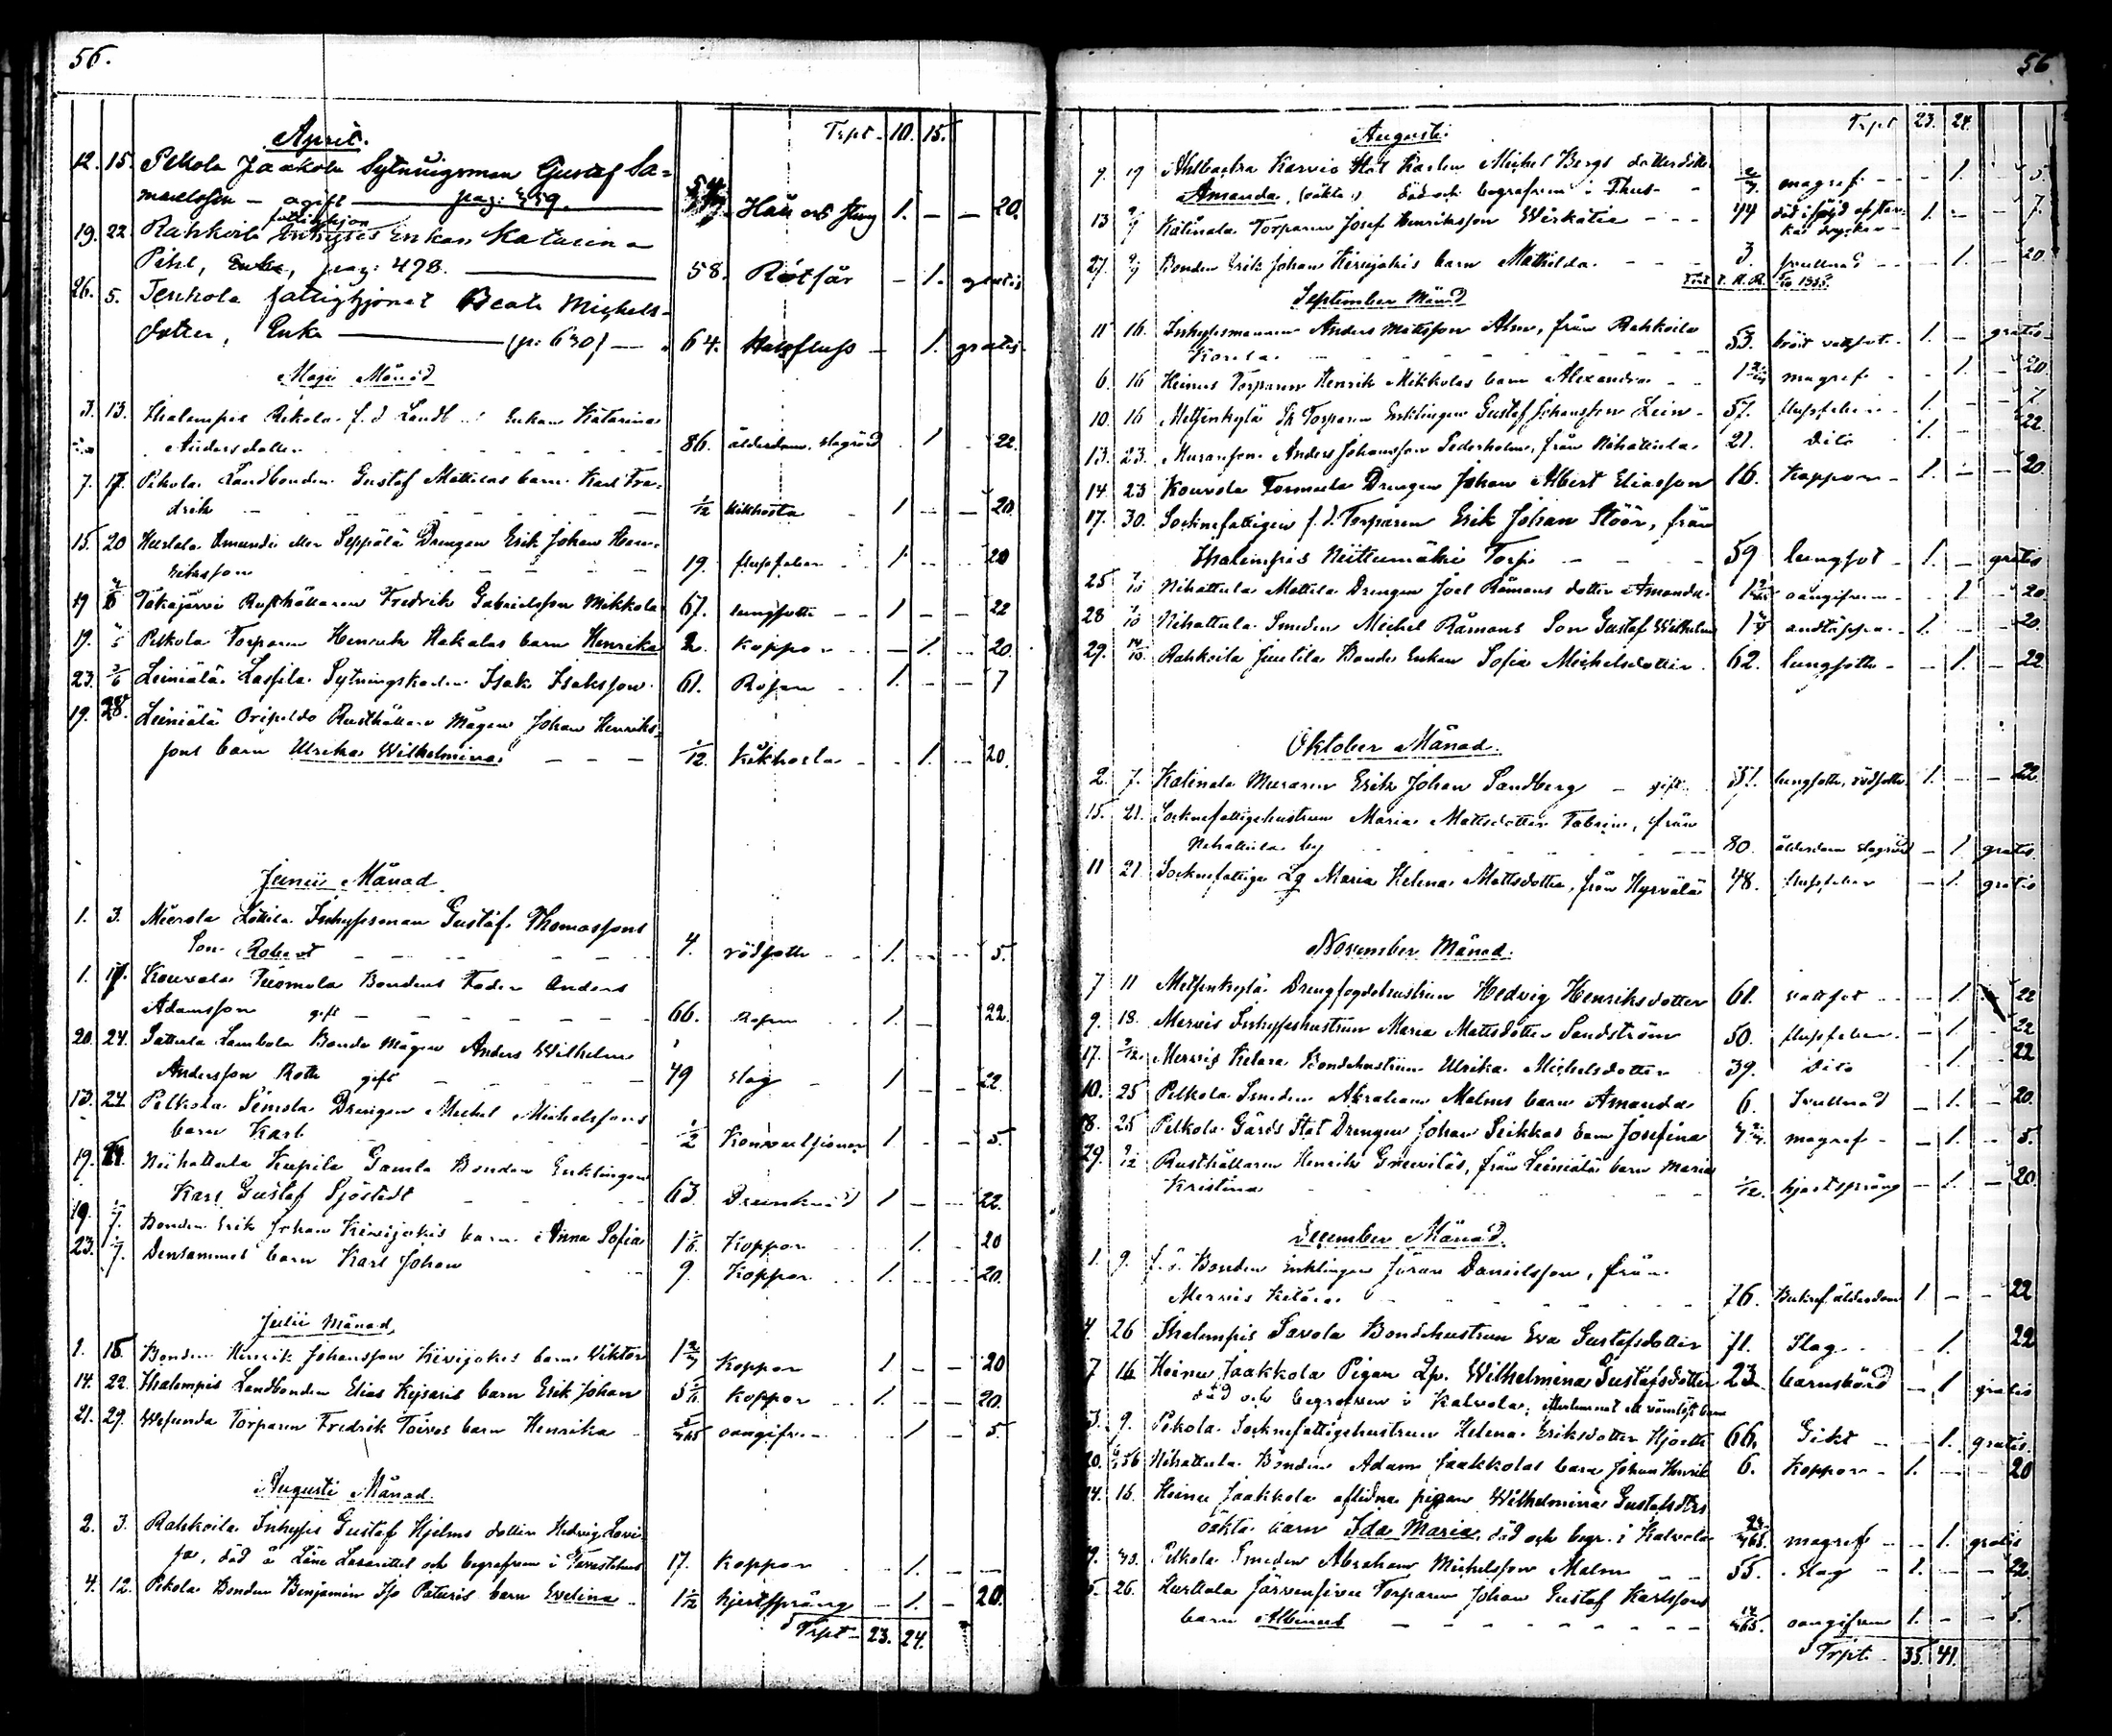 56.
April.
Trpt. 10. 15.
12. 15. Pelkola Jaakola Sytningsman Gustaf Sa=
muelsson — ogift — pag: 559. Håll och styng 1. — — 20.
fattighjon
19. 22. Rahkoila Enkan Katarina
Pihl, Enka, pag: 478. — 58. Rötfår — 1. gratis
26. 5. Tenhola fattighjonet Beata Michels-
dotter, Enka — (p: 630) — 64. Halsfluss — 1. gratis.
Maji Månad
3. 13. Thalempis Rekola f.d Landb Enkan Katarina
Andersdotter 86. ålderdom. slagröd 1 22.
7. 17. Pekola Landbonden Gustaf Mattilas barn Karl Fre-
drik 1/12 kikhosta 1 — — 20.
15. 20 Hurtala Amundi eller Seppälä Drengen Erik Johan Hen-
riksson 19. flussfeber 1. 20
19 Takajärvi Rusthållaren Fredrik Gabrielsson Mikkola 67. lungsotti 1 — — 22
19. Pelkola Torparen Henrik Hakalas barn Henrika 2. Koppor — 1. 20.
23. 2/6 Leiniälä Laspila Sytningskarlen Isak Isaksson 61. Rosen 1. — — 7
19. 28. Leiniälä Oripeldo Rusthållare Mågen Johan Henriks-
sons barn Ulrika Wilhelmina — — — 1/12. Kikhosta 1. — 20.
Junii Månad
1. 3. Mierola Lottila Inhyssman Gustaf Thomassons
Son Robert 4. rödsotti 1. — 5.
1. 17. Kouvola Tuomola Bondens Fader Anders
Adamsson gift — 66. Rosen 1. 22.
20. 24. Sattula Lambola Bonde Mågen Anders Wilhelm
Andersson Roth gift — 49 Slag 1 — 22.
13. 24. Pelkola Simola Drengen Michel Michelssons
barn Karl 1/2 Konvultsioner 1. — 5.
19. 24. Niihattula Kupila Gamla Bonden Enklingen
Karl Gustaf Sjöstedt 63. Drunknad 1 — — 22.
19. 1/7. Bonden Erik Johan Kivijakis barn Anna Sofia 1 Koppor 1. 20
23. 1/7. Densammes barn Karl Johan 9. Koppor 1. 20.
Julii Månad,
1. 15. Bonden Henrik Johansson Kivijakis barn Viktor 1 Koppor 1 — — 20
14. 22. Thalempis Landbonden Elias Kejsaris barn Erik Johan 5 Koppor 1. — 20.
21. 29. Wesunda Torparen Fredrik Toivos barn Henrika oangifven 1 — 5.
Augusti Månad.
2. 3. Rahkoila Inhyses Gustaf Hjelms dotter Hedvig Lovi-
sa, död å Läne Lasarettet och begrafven i Tavastehus 17. Koppor 1. —
4. 12. Pekola Bonden Benjamin Paturis barn Evelina 1 1/12 hjertsprång — 1. — 20.
Trpt — 23. 24.
56
Augusti
Trpt 23. 24.
9. 19 Karvio Stat Karlen Michel Bergs dotterdotter
Amanda. (oäkta) död och begrafven i Thus — magref 1. 5.
13 Katinala Torparen Josef Henriksson Wirkatie 44 död i följd af star-
ka drycker 1. — 7.
27. Bonden Erik Johan Kivijakis barn Mathilda 3. svullnad 1. 20.
September Månad
11 16. Inhysesmannen Anders Mattsson Alm, från Rahkoila
Korela 53. bröst vattsot 1. — gratis
6. 16 Heinus Torparen Henrik Mikkolas barn Alexandra 1 magref 1. 20.
10. 16 Metsenkylä Torparen Enklingen Gustaf Johansson Lein- 57. flussfeber 1. — 7
13. 23. Muraren Anders Johansson Sederholm, från Nihattula 21. dito 1. — 22.
14. 23 Kouvola Tormula Drengen Johan Albert Eliasson 16. Koppor 1. — 20
17. 30. Socknefattigen f.d. Torparen Erik Johan Stöör, från
Thalempis Niittumäki Torp — 59 lungsot 1. — gratis
25 7/10 Nihattula Mattila Drengen Joel Råmans dotter Amanda 1 oangifven 1 20.
28 7/10 Nihattula Smeden Michel Råmans Son Gustaf Wilhelm 1 andtäppa 1. 20.
29. 14/10. Rahkoila Juntila Bonde Enkan Sofia Michelsdotter 62. lungsotti 1. — 22
Oktober Månad.
2. 7. Katinala Muraren Erik Johan Sandberg — gift 51. lungsotti, rödsotti 1. — 22
15. 21. Socknefattigehustrun Maria Mattsdotter Fabrin, från
Nihattula by 80. ålderdom slagröd — 1 gratis.
11 21. Socknefattige Lq Maria Helena Mattsdotter, från Hyrvälä 48. flussfeber — 1. gratis
November Månad.
7 11 Metsenkylä Drengfogdehustrun Hedvig Henriksdotter 61. vattsot 1. 22
9. 18. Mervis Inhyseshustrun Maria Mattsdotter Sandström 50. flussfeber 1. 22
17. 2/12. Mervis Ketara Bondehustrun Ulrika Michelsdotter 39. dito 1. 22
10. 25 Pelkola Smeden Abraham Malms barn Amanda 6. Svullnad — 1. 20.
18. 25 Pelkola Gårds Stat Drengen Johan Peikkas barn Josefina magref — 1. 5.
29. 9/12 Rusthållaren Henrik Grenvilas, från Leiniälä barn Maria
Kristina 1/12. hjertsprång — 1. — 20
December Månad.
1. 9. f.d. Bonden Enklingen Jöran Danielsson, från
Mervis Ketara 76. Bukref ålderdom 1 — — 22
4. 26 Thalempis Savola Bondehustrun Eva Gustafsdotter 71. Slag 1. 22
7 16 Heinu Jaakkola Pigan Qp. Wilhelmina Gustafsdotter 23 barnsbörd — 1 gratis
död och begrafven i Kalvola;
3. 9. Pekola Socknefattigehustrun Helena Eriksdotter Hjortt 66. Gikt 1. gratis.
20. 26 Nihattula Bonden Adam Jaakkolas barn Johan Henrik 6. Koppor 1. 20
14. 16. Heinu Jaakkola aflidna pigan Wilhelmina Gustafsdtrs
oäkta barn Ida Maria, död och begr. i Kalvola magref 1. gratis
19. 30. Pelkola Smeden Abraham Michelsson Malm 55. Slag 1. — 22.
26. Hurttala Järvensivu Torparen Johan Gustaf Karlssons
barn Albinus — 14/365. oangifven 1. — 5.
Trpt. 35. 41.